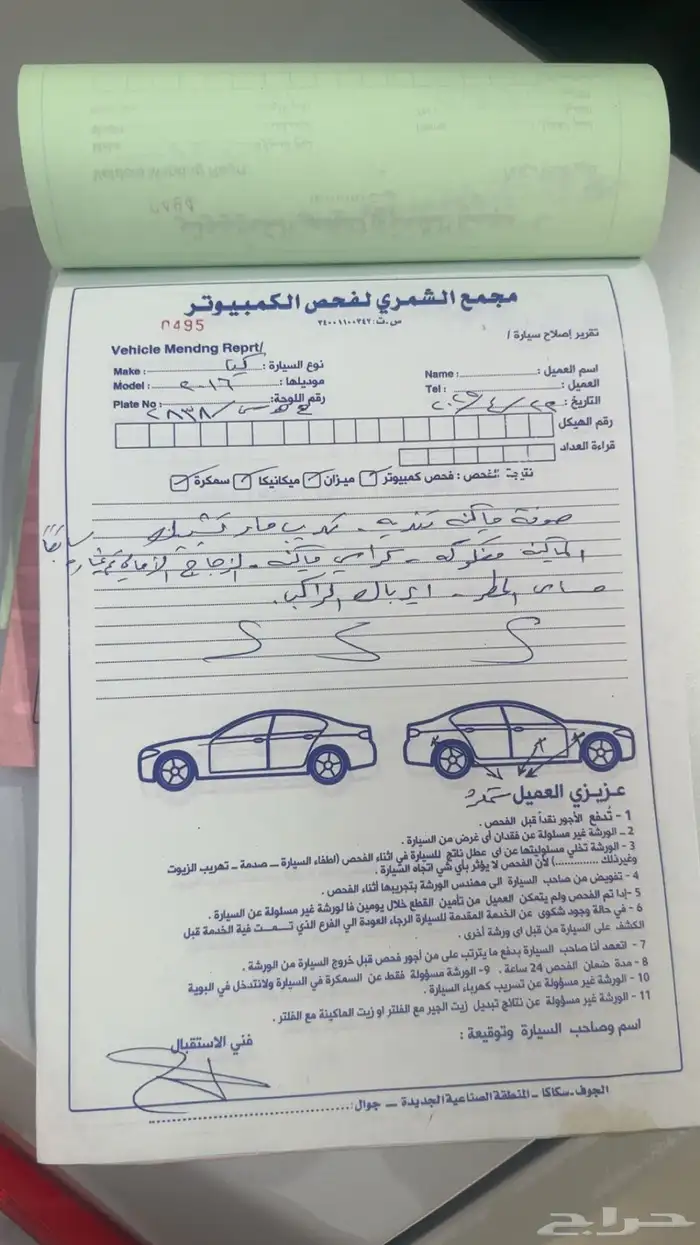 مجمع الشمري لفحص الكمبيوتر
س.ت: ٣٤٠٠١١٠٠٢٤٢
0495
تقرير إصلاح سيارة /
Vehicle Mendng Reprt/
اسم العميل : Name :
نوع السيارة : كيا Make :
العميل : Tel :
موديلها : ٢٠١٦ Model :
التاريخ : ٤
رقم اللوحة: ٢٨٣٨ Plate No :
رقم الهيكل
قراءة العداد
نتيجة الفحص : فحص كمبيوتر ميزان ميكانيكا سمكرة
صوفة ماكينه تنديه - تهريب
الماكينه مفكوكه - كراسي ماكينه - الزجاج الأمامي سابقا
حساس المطر - ايرباق الراكب.
عزيزي العميل
1 - تُدفع الأجور نقداً قبل الفحص .
2 - الورشة غير مسئولة عن فقدان أى غرض من السيارة .
3 - الورشة تخلي مسئوليتها عن اى عطل ناتج للسيارة في اثناء الفحص (اطفاء السيارة - صدمة - تهريب الزيوت
وغيرذلك ..............) لأن الفحص لا يؤثر بأي شي اتجاه السيارة .
4 - تفويض من صاحب السيارة الى مهندس الورشة بتجريبها أثناء الفحص .
5 -إذا تم الفحص ولم يتمكن العميل من تأمين القطع خلال يومين فا لورشة غير مسئولة عن السيارة .
6 - في حالة وجود شكوى عن الخدمة المقدمة للسيارة الرجاء العودة الي الفرع الذي تـــمــت فية الخدمة قبل
الكشف على السيارة من قبل اى ورشة أخرى .
7 - اتعهد أنا صاحب السيارة بدفع ما يترتب على من أجور فحص قبل خروج السيارة من الورشة .
8 - مدة ضمان الفحص 24 ساعة . 9- الورشة مسؤولة فقط عن السمكرة في السيارة ولانتدخل في البوية
10 - الورشة غير مسؤولة عن تسريب كهرباء السيارة .
11 - الورشة غير مسؤولة عن نتائج تبديل زيت الجير مع الفلتر او زيت الماكينة مع الفلتر .
اسم وصاحب السيارة وتوقيعة :
فني الاستقبال
الجوف-سكاكا - المنطقة الصناعية الجديدة - جوال:
حراج